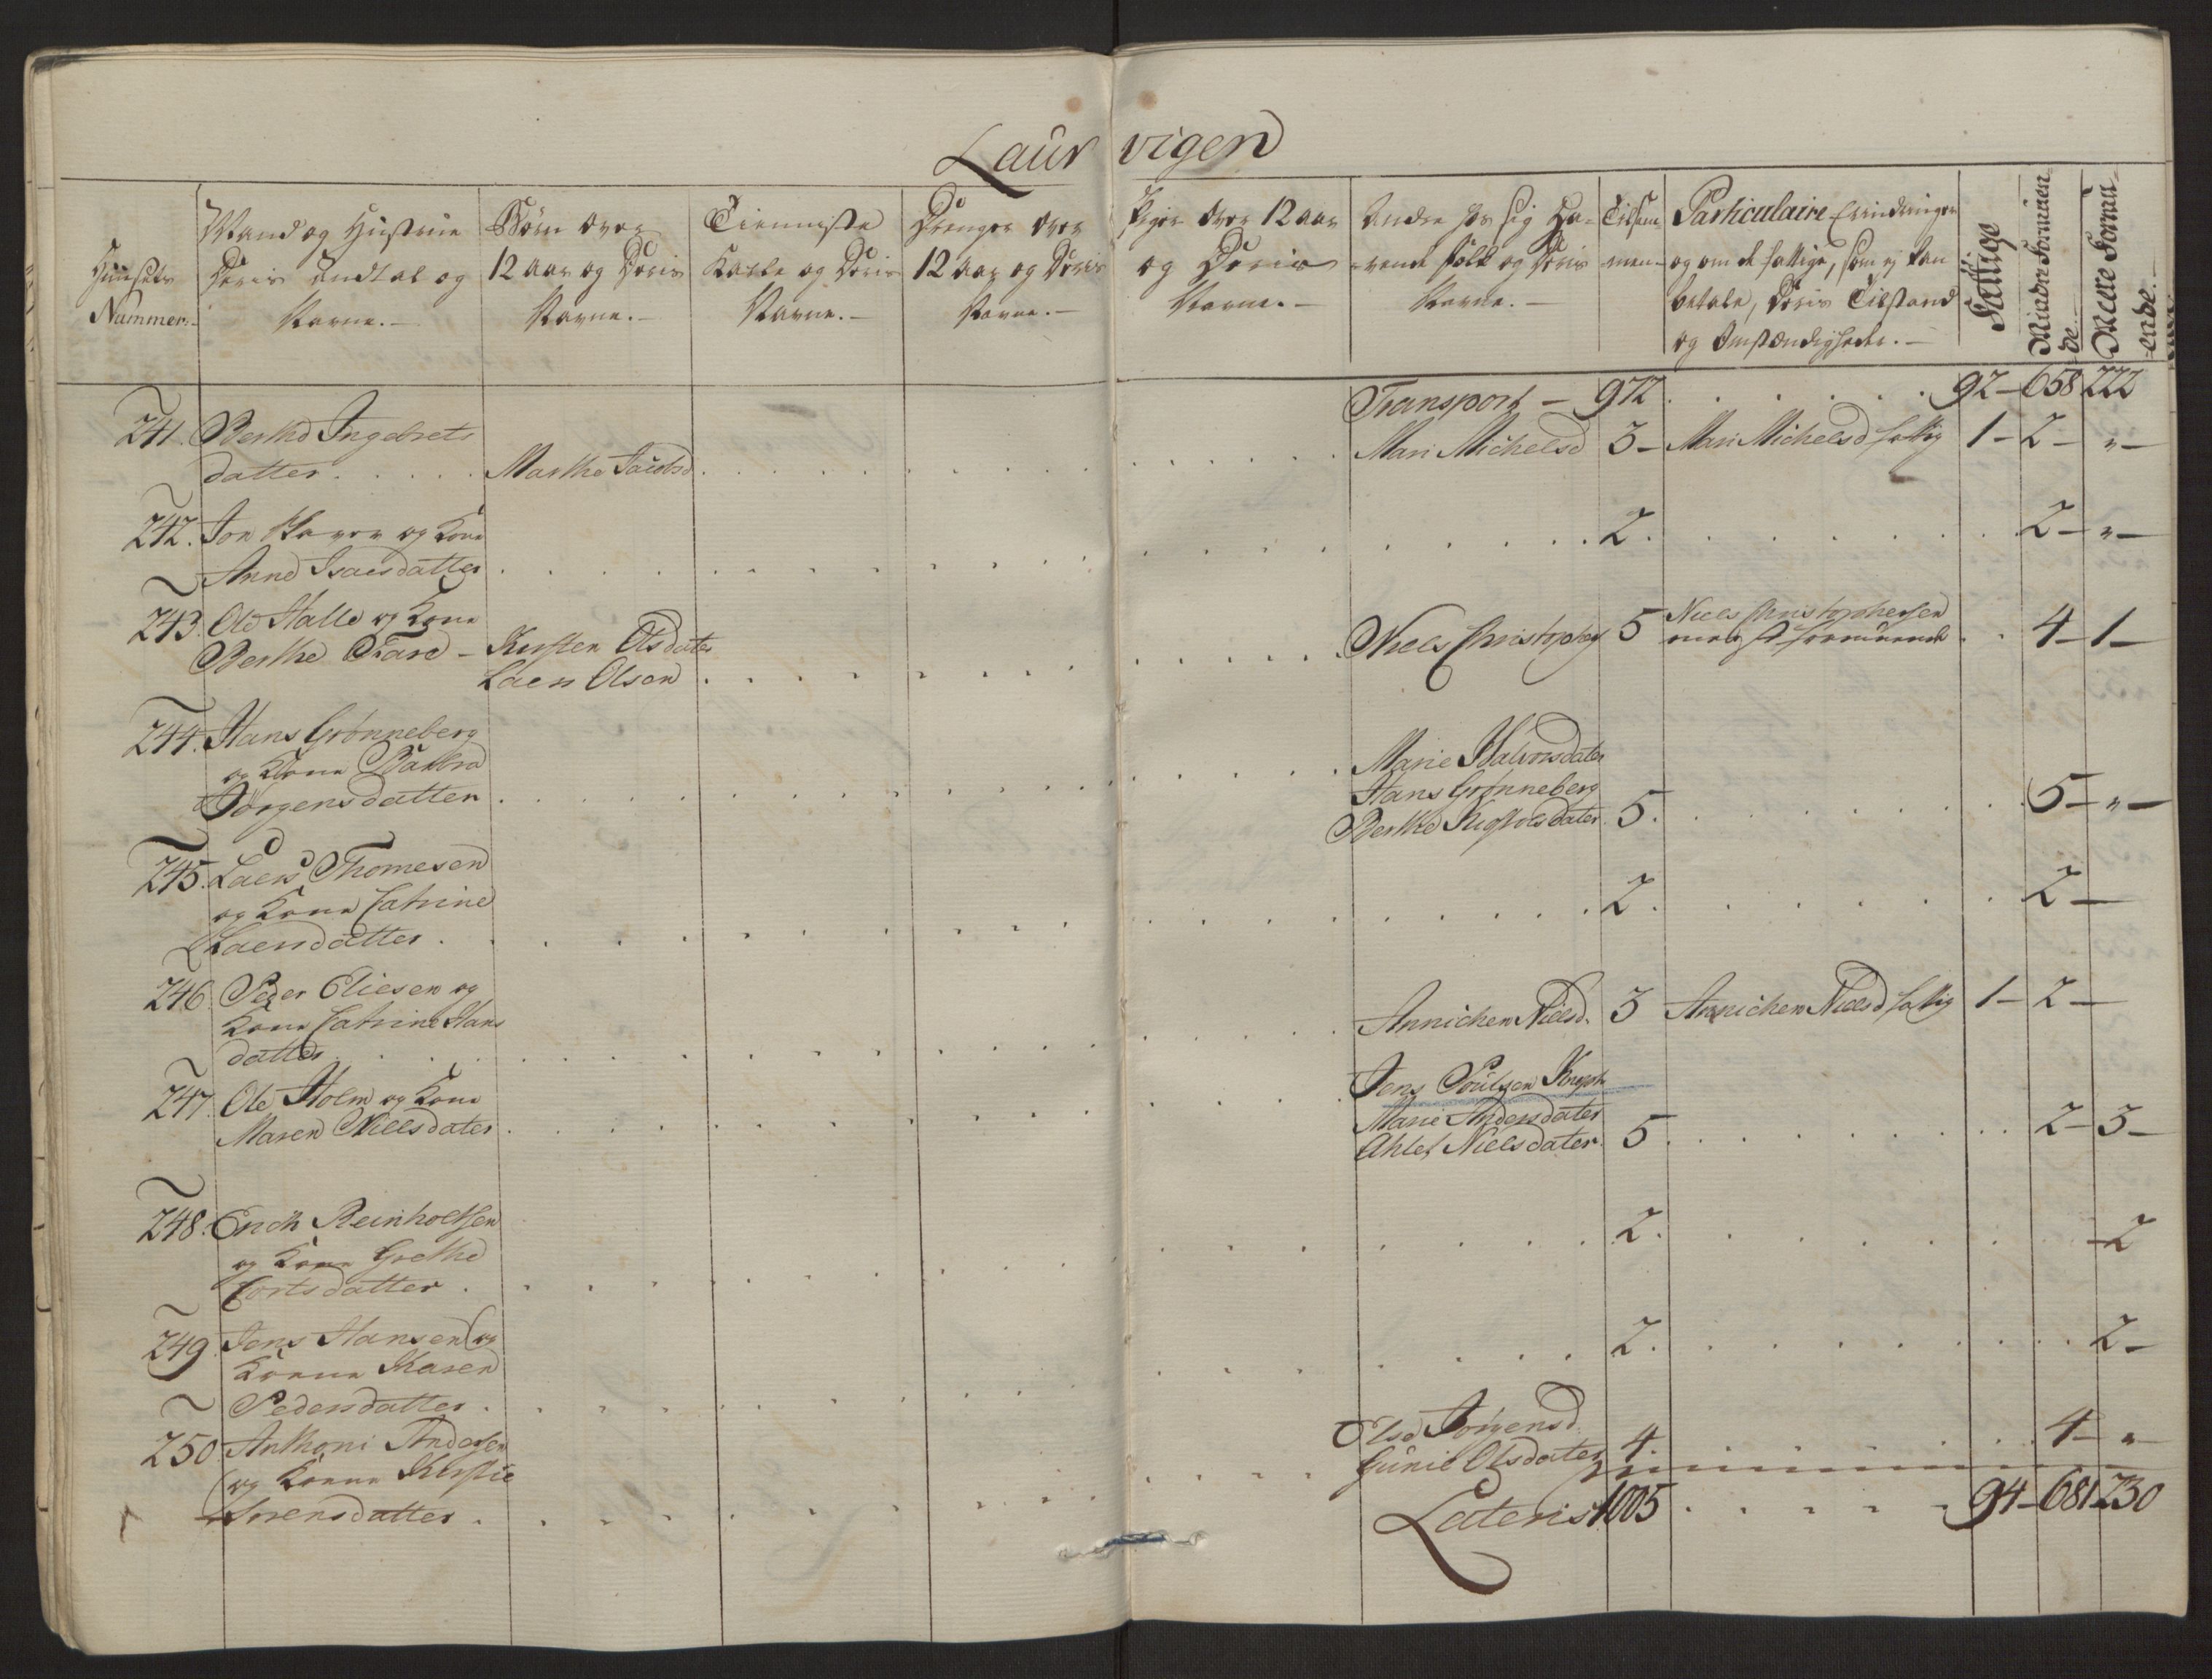 Laurvigen
Huusets
Nummer.
Mand og Hustrue
Deris Andtal og
Navne.
Børn over
12 Aar og Deris
Navne.
Tienniste
Karle og Deris
Navne.
Drenger over
12 Aar og Deris
Navne.
Piger over 12 aar
og Deris
Navne.
Andre hos sig Ha-
vende folk og Deris
Navne.
Tilsam-
men
Particulaire Erindringer
og om de fattige, som ej kan
betale, Deris Tilstand
og Omstændigheder.
Fattige
Mindre Formuen
de
Meere Formu-
ende.
Transport - 972 92 - 658 222
241. Berthe Ingebrets
datter Marthe Jacobsd Mari Michelsd 3 - Mari Michelsd fattig 1 - 2 - "
242. Jon og Kone
Anne Isacsdatter 2. 2 - "
243. Ole Halle og Kone
Berthe - Kirsten Olsdater
Laers Olsen Niels Christophers 5 Niels Christophersen
formuende 4 - 1 -
244. Hans Grønneberg
og Kone Barbra
Jørgensdatter
Marie Halvorsdater
Hans Grønneberg
Berthe dater 5. 5 - "
245. Laers Thomesen
og Kone Catrine
Laersdatter 2. 2 -
246. Peder Eliesen og
Kone Catrine Hans
datter Annichen Nielsd. 3 Annichen Nielsd fattig 1 - 2 -
247. Ole Holm og Kone
Maren Nielsdater
Jens Poulsen
Marie Andersdater
Ahlet Nielsdater 5 2 - 3 -
248. Erich Reinholtsen
og Kone Grethe
Cortsdatter 2. 2
249. Jens Hansen og
Konne Maren
Pedersdatter 2. 2 -
250. Anthoni Andersen
og Konne Kirstie
Sørensdatter
Else Jørgensd.
Gunil Olsdater 4. 4 - "
Lateris 1005 94 - 681 230